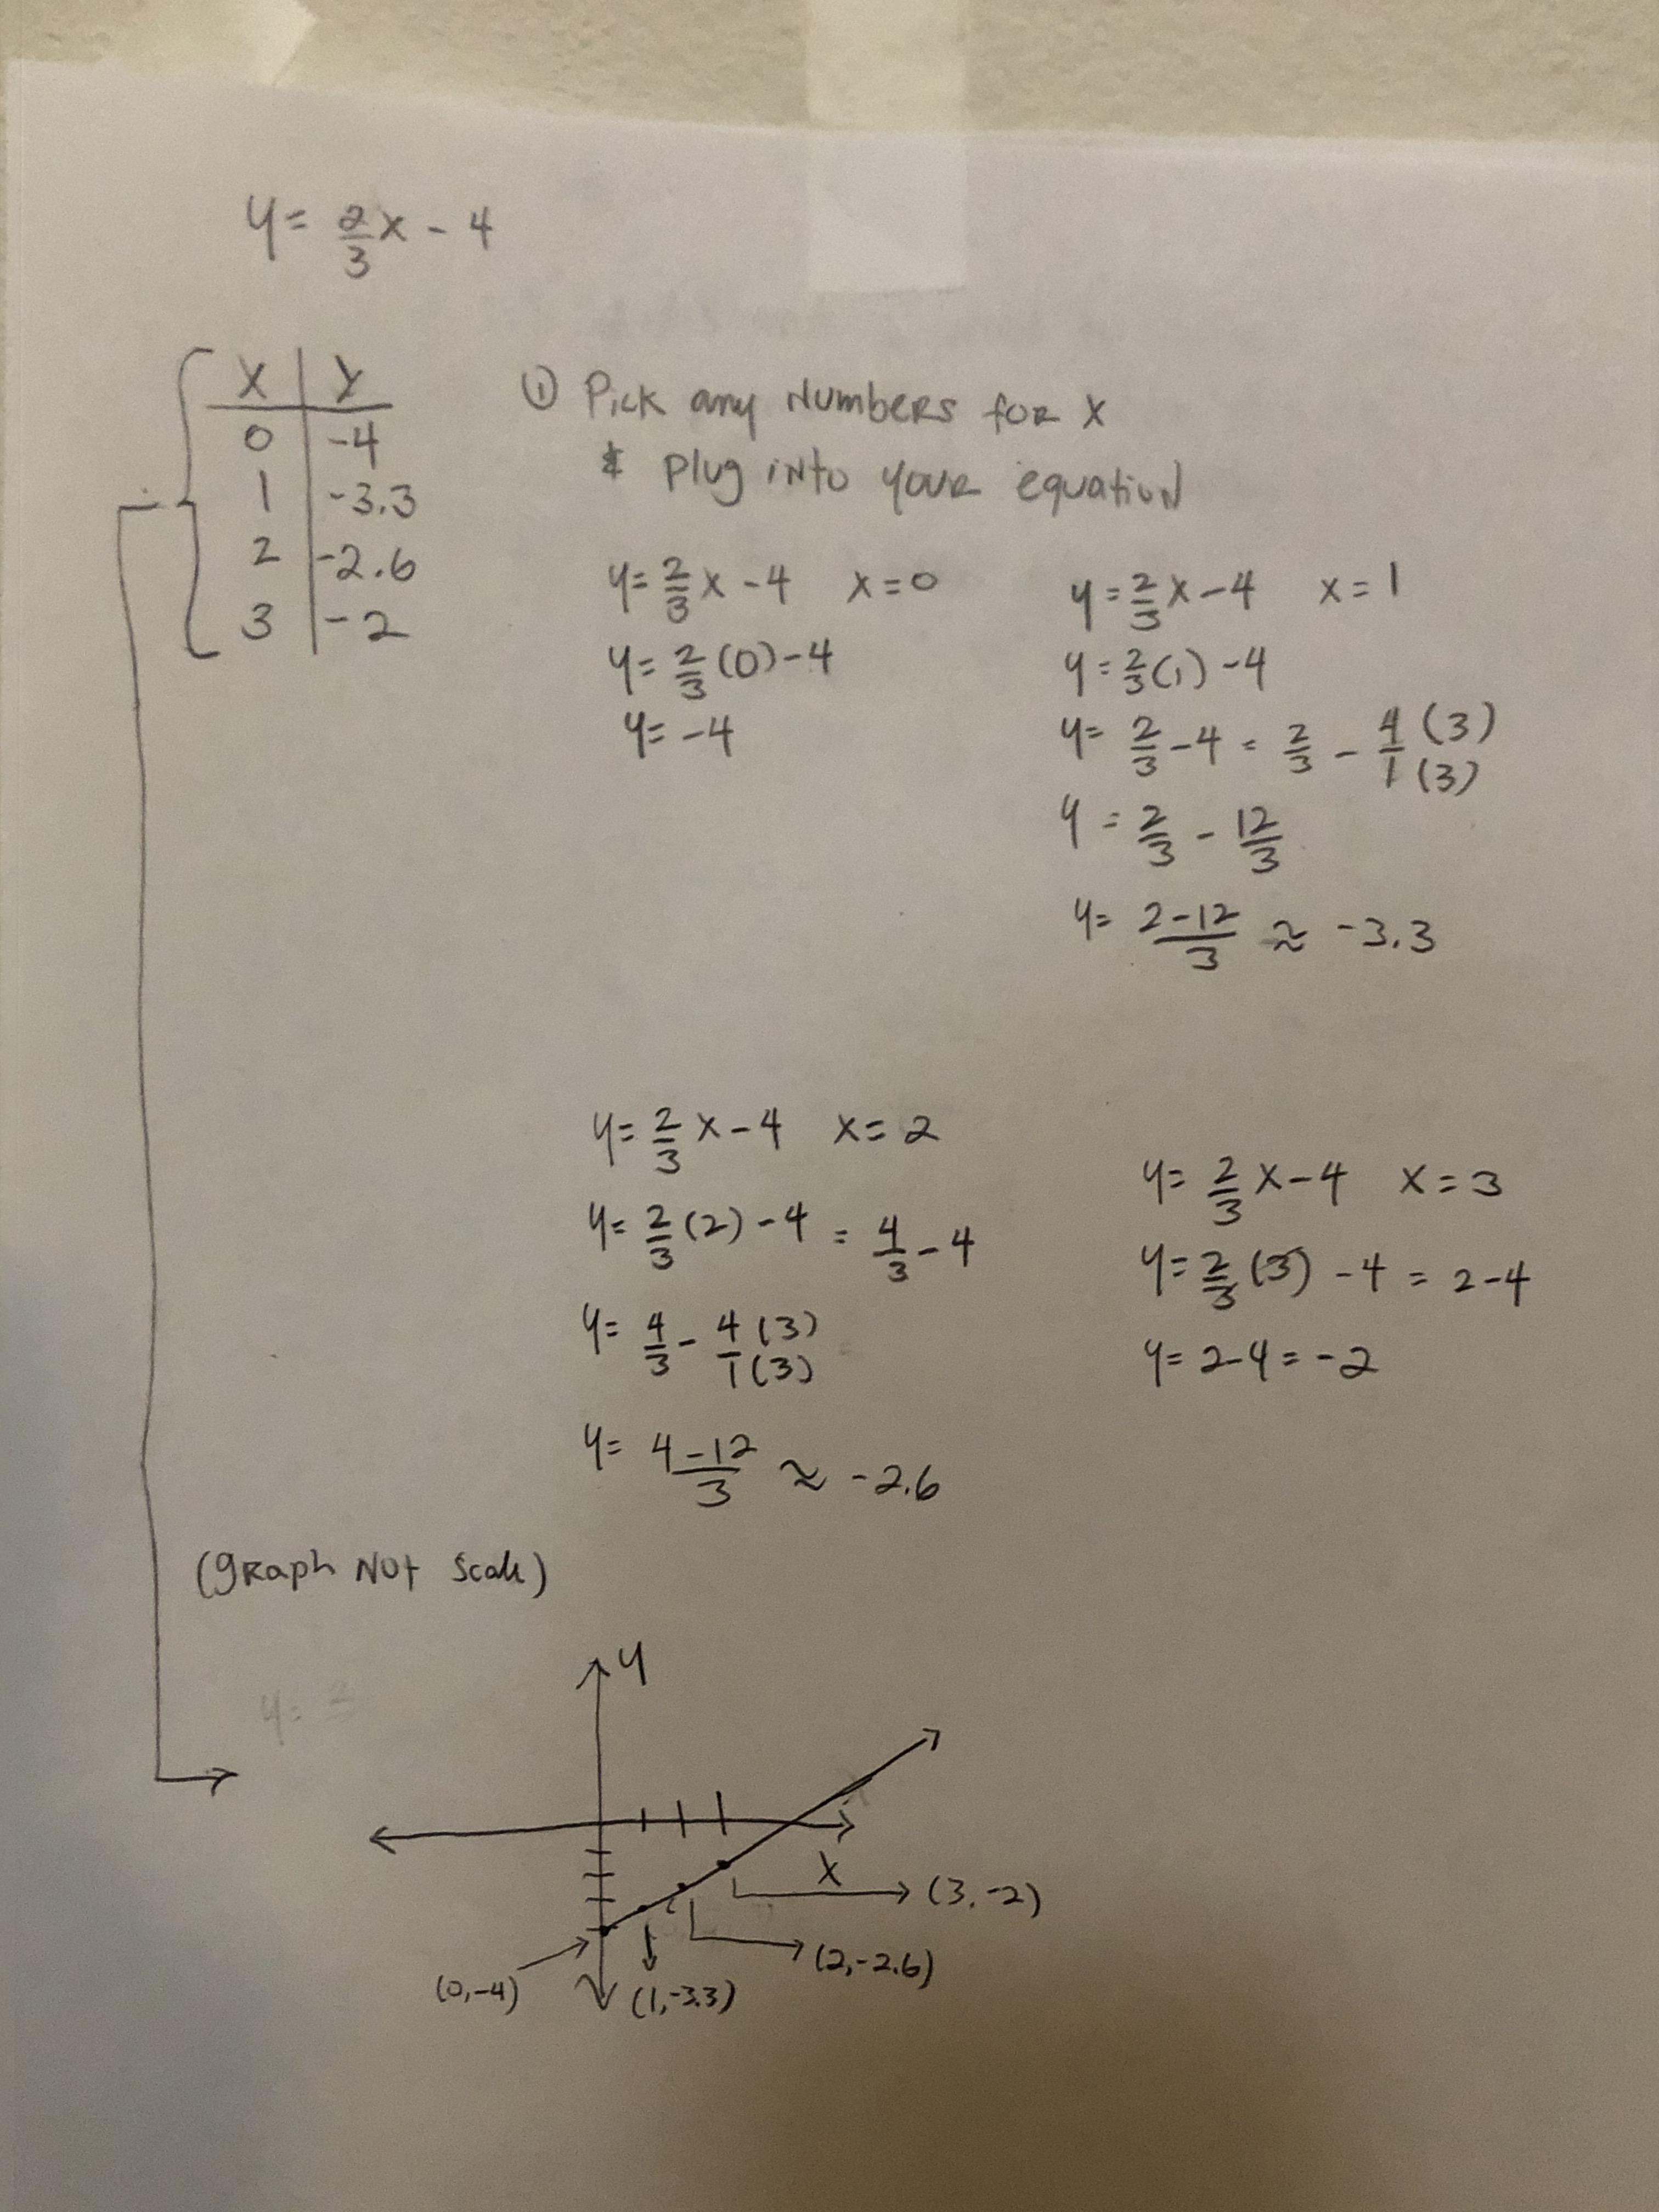 y = 2/3 x - 4
X | Y
0 | -4
1 | -3.3
2 | -2.6
3 | -2
① Pick any Numbers for X
& plug into your equation
y = 2/3 x - 4 x = 0
y = 2/3 (0) - 4
y = -4
y = 2/3 x - 4 x = 1
y = 2/3 (1) - 4
y = 2/3 - 4 = 2/3 - 4/1 (3)/(3)
y = 2/3 - 12/3
y = 2-12/3 ≈ -3.3
y = 2/3 x - 4 x = 2
y = 2/3 (2) - 4 = 4/3 - 4
y = 4/3 - 4/1 (3)/(3)
y = 4-12/3 ≈ -2.6
y = 2/3 x - 4 x = 3
y = 2/3 (3) - 4 = 2 - 4
y = 2 - 4 = -2
(graph Not Scale)
y
X
(3,-2)
(2,-2.6)
(0,-4)
(1,-3.3)